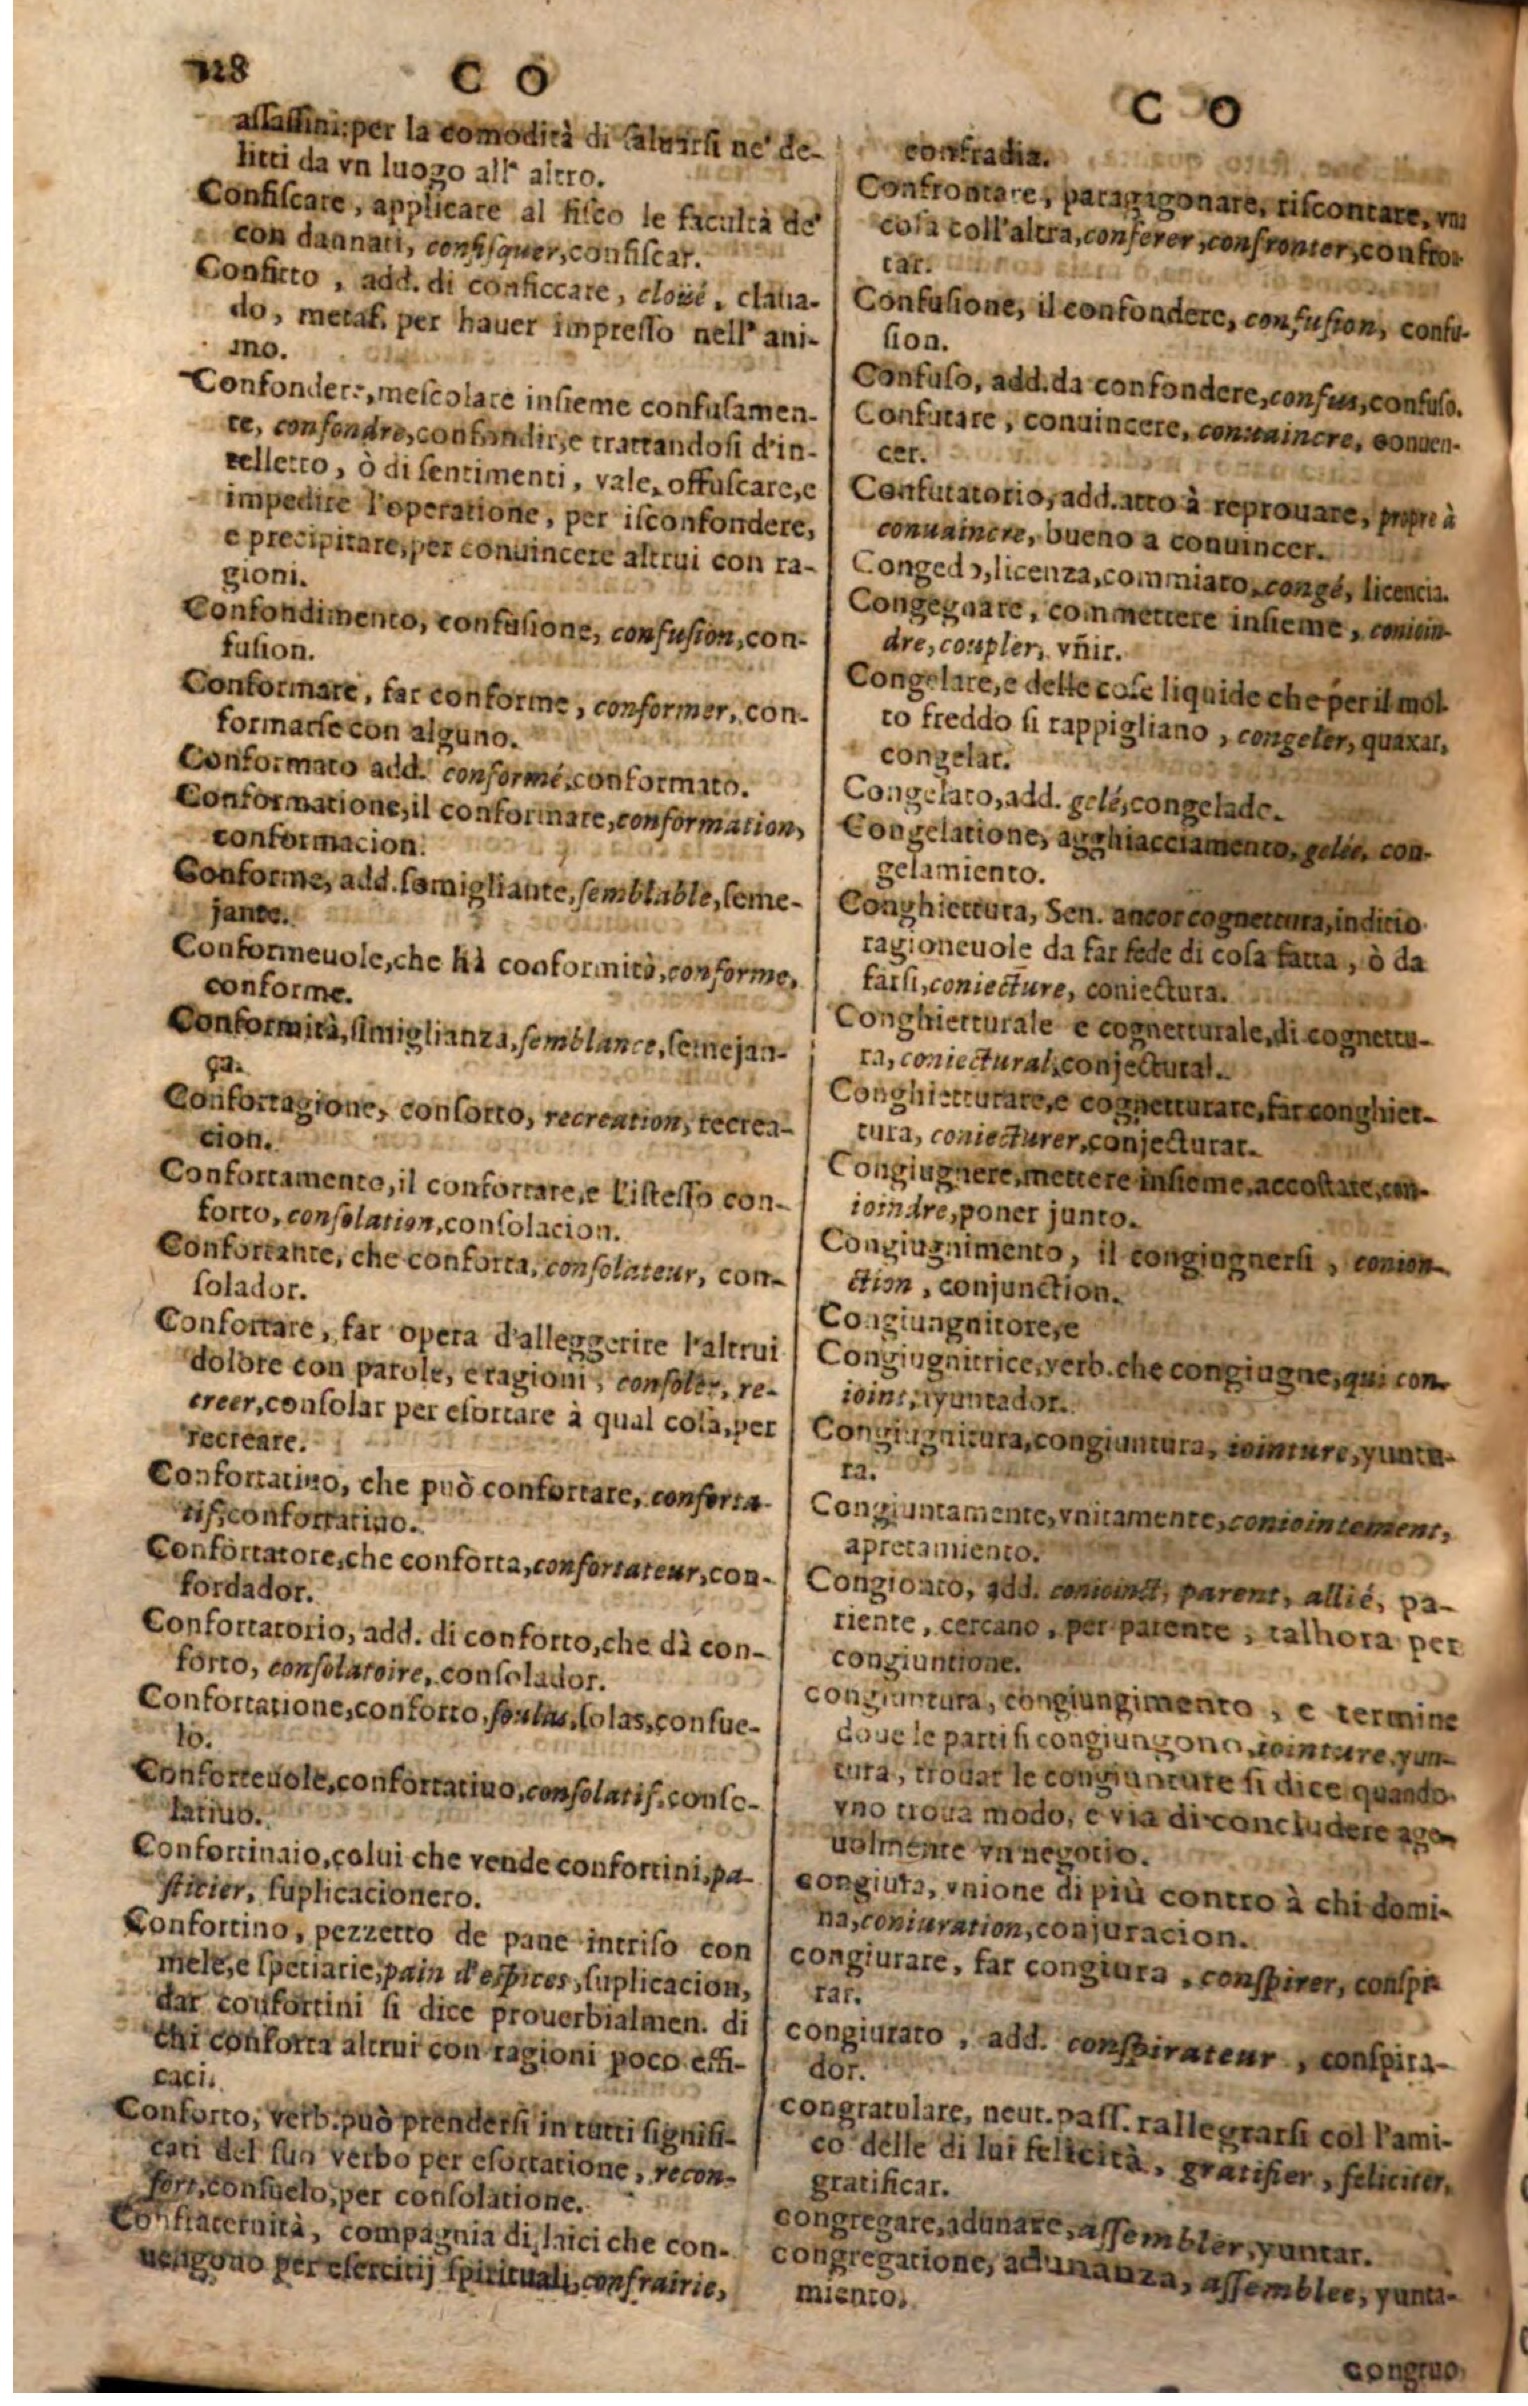 128
C O
assassini: per la comodità di saluarsi ne' de-
litti da vn luogo all' altro.
Confiscare, applicare al fisco le facultà de'
con dannati, confisquer, confiscar.
Confitto, add. di conficcare, cloüé, claua-
do, metaf. per hauer impresso nell' ani-
mo.
Confondere, mescolare insieme confusamen-
te, confondre, confondir, e trattandosi d'in-
telletto, ò di sentimenti, vale, offuscare, e
impedire l'operatione, per isconfondere,
e precipitare, per conuincere altrui con ra-
gioni.
Confondimento, confusione, confusion, con-
fusion.
Conformare, far conforme, conformer, con-
formarse con alguno.
Conformato add. conformé, conformato.
Conformatione, il conformare, conformation,
conformacion.
Conforme, add. somigliante, semblable, seme-
jante.
Conformeuole, che hà conformità, conforme,
conforme.
Conformità, simiglianza, semblance, semejan-
ça.
Confortagione, conforto, recreation, recrea-
cion.
Confortamento, il confortare, e l'istesso con-
forto, consolation, consolacion.
Confortante, che conforta, consolateur, con-
solador.
Confortare, far opera d'alleggerire l'altrui
dolore con parole, e ragioni, consoler, re-
creer, consolar per esortare à qual cosa, per
recreare.
Confortatiuo, che può confortare, conforta-
tif, confortatiuo.
Confortatore, che conforta, confortateur, con-
fordador.
Confortatorio, add. di conforto, che dà con-
forto, consolatoire, consolador.
Confortatione, conforto, soulas, solas, consue-
lo.
Conforteuole, confortatiuo, consolatif, conso-
latiuo.
Confortinaio, colui che vende confortini, pa-
sticier, suplicacionero.
Confortino, pezzetto de pane intriso con
mele, e spetiarie, pain d'espices, suplicacion,
dar confortini si dice prouerbialmen. di
chi conforta altrui con ragioni poco effi-
caci.
Conforto, verb. può prendersi in tutti signifi-
cati del suo verbo per esortatione, recon-
fort, consuelo, per consolatione.
Confraternità, compagnia di laici che con-
uengono per esercitij spirituali, confrairie,
C O
confradia.
Confrontare, paragigonare, riscontare, vna
cosa coll'altra, conferer, confronter, confron-
tar.
Confusione, il confondere, confusion, confu-
sion.
Confuso, add. da confondere, confus, confuso.
Confutare, conuincere, conuaincre, conuen-
cer.
Confutatorio, add. atto à reprouare, propre à
conuaincre, bueno a conuincer.
Congedo, licenza, commiato, congé, licencia.
Congegnare, commettere insieme, conioin-
dre, coupler, vñir.
Congelare, e delle cose liquide che per il mol-
to freddo si rappigliano, congeler, quaxar,
congelar.
Congelato, add. gelé, congelade.
Congelatione, agghiacciamento, gelée, con-
gelamiento.
Conghiettura, Sen. ancor cognettura, inditio
ragioneuole da far fede di cosa fatta, ò da
farsi, coniecture, coniectura.
Conghietturale e cognetturale, di cognettu-
ra, coniectural, conjectural.
Conghietturare, e cognetturare, far conghiet-
tura, coniecturer, conjecturar.
Congiugnere, mettere insieme, accostare, con-
ioindre, poner junto.
Congiugnimento, il congiugnersi, conion-
ction, conjunction.
Congiungnitore, e
Congiugnitrice, verb. che congiugne, qui con-
ioint, ayuntador.
Congiugnitura, congiuntura, iointure, yuntu-
ra.
Congiuntamente, vnitamente, coniointement,
apretamiento.
Congionto, add. conioinct, parent, allié, pa-
riente, cercano, per parente, talhora per
congiuntione.
congiuntura, congiungimento, e termine
doue le parti si congiungono, iointure, yun-
tura, trouar le congiunture si dice quando
vno troua modo, e via di concludere age-
uolmente vn negotio.
congiura, vnione di più contro à chi domi-
na, coniuration, conjuracion.
congiurare, far congiura, conspirer, conspi-
rar.
congiurato, add. conspirateur, conspira-
dor.
congratulare, neut. pass. rallegrarsi col l'ami-
co delle di lui felicità, gratifier, feliciter,
gratificar.
congregare, adunare, assembler, yuntar.
congregatione, adunanza, assemblee, yunta-
miento.
congruo